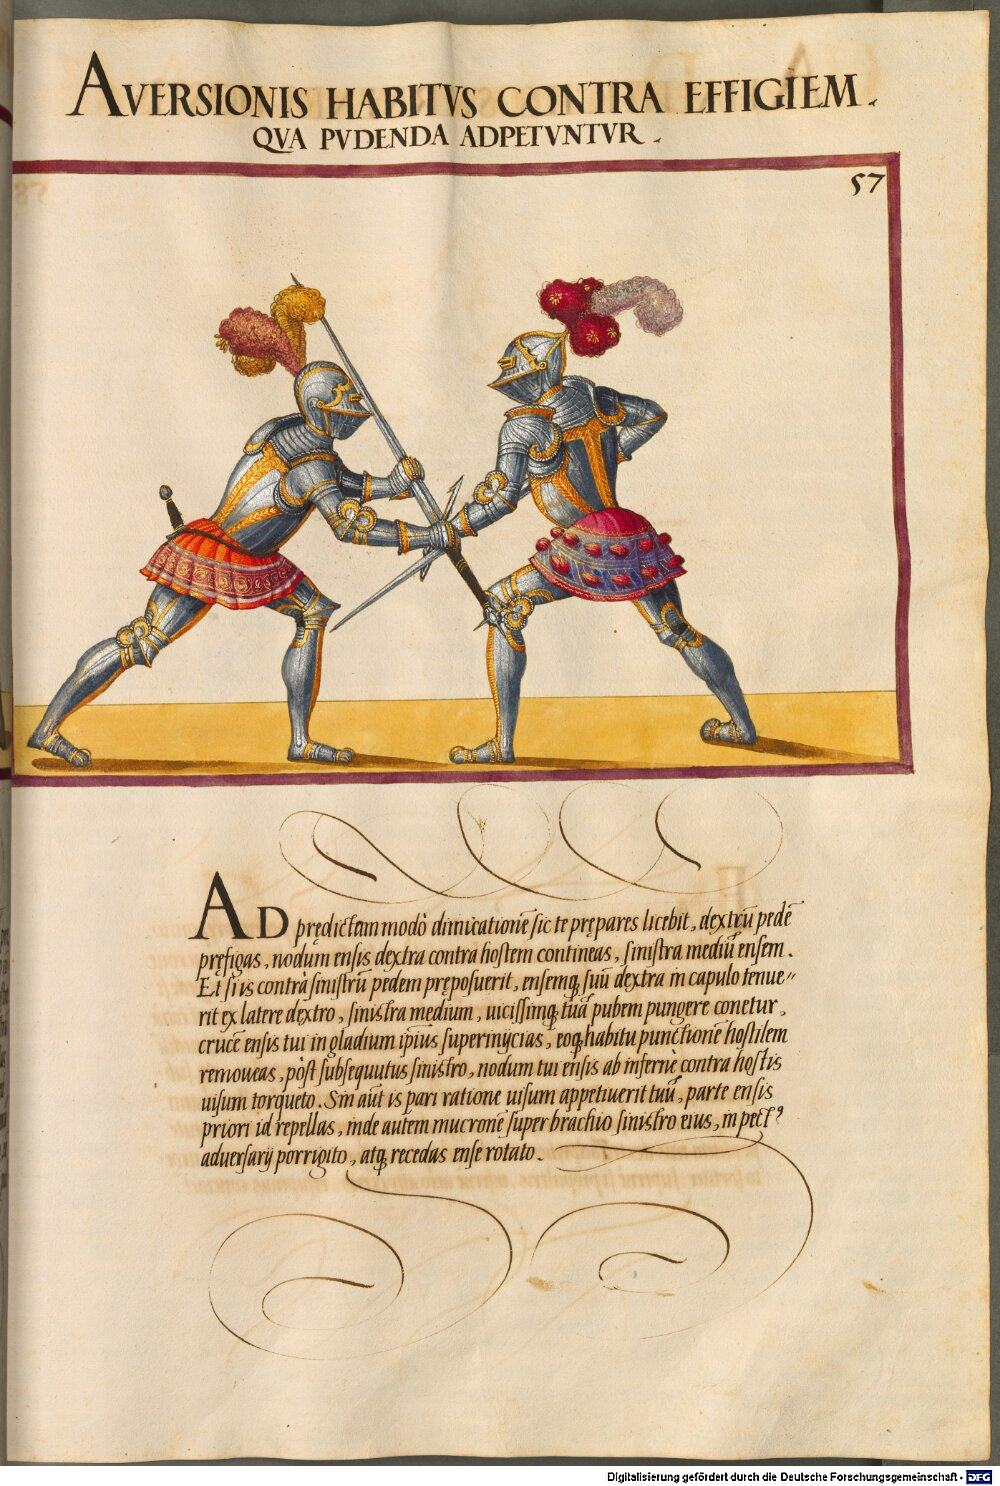 AVERSIONIS HABITVS CONTRA EFFIGIEM.
QVA PVDENDA ADPETVNTVR.
57
AD prędictam modò dimicationē sic te prępares licebit, dextrū pedē
pręfigas, nodum ensis dextra contra hostem contineas, sinistra mediū ensem.
Et si is contrà sinistrū pedem pręposuerit, ensemq́ suū dextra in capulo tenue〃
rit ex latere dextro, sinistra medium, uicissimq́ tuā pubem pungere conetur,
crucē ensis tui in gladium ipsius superinijcias, eoq́ habitu punctionē hostilem
remoueas, pòst subsequutus sinistro, nodum tui ensis ab infernè contra hostis
uisum torqueto. Sin aūt is pari ratione uisum appetiuerit tuū, parte ensis
priori id repellas, inde autem mucronē super brachio sinistro eius, in pectꝰ
aduersarij porrigito, atq́ recedas ense rotato.
Digitalisierung gefördert durch die Deutsche Forschungsgemeinschaft - DFG